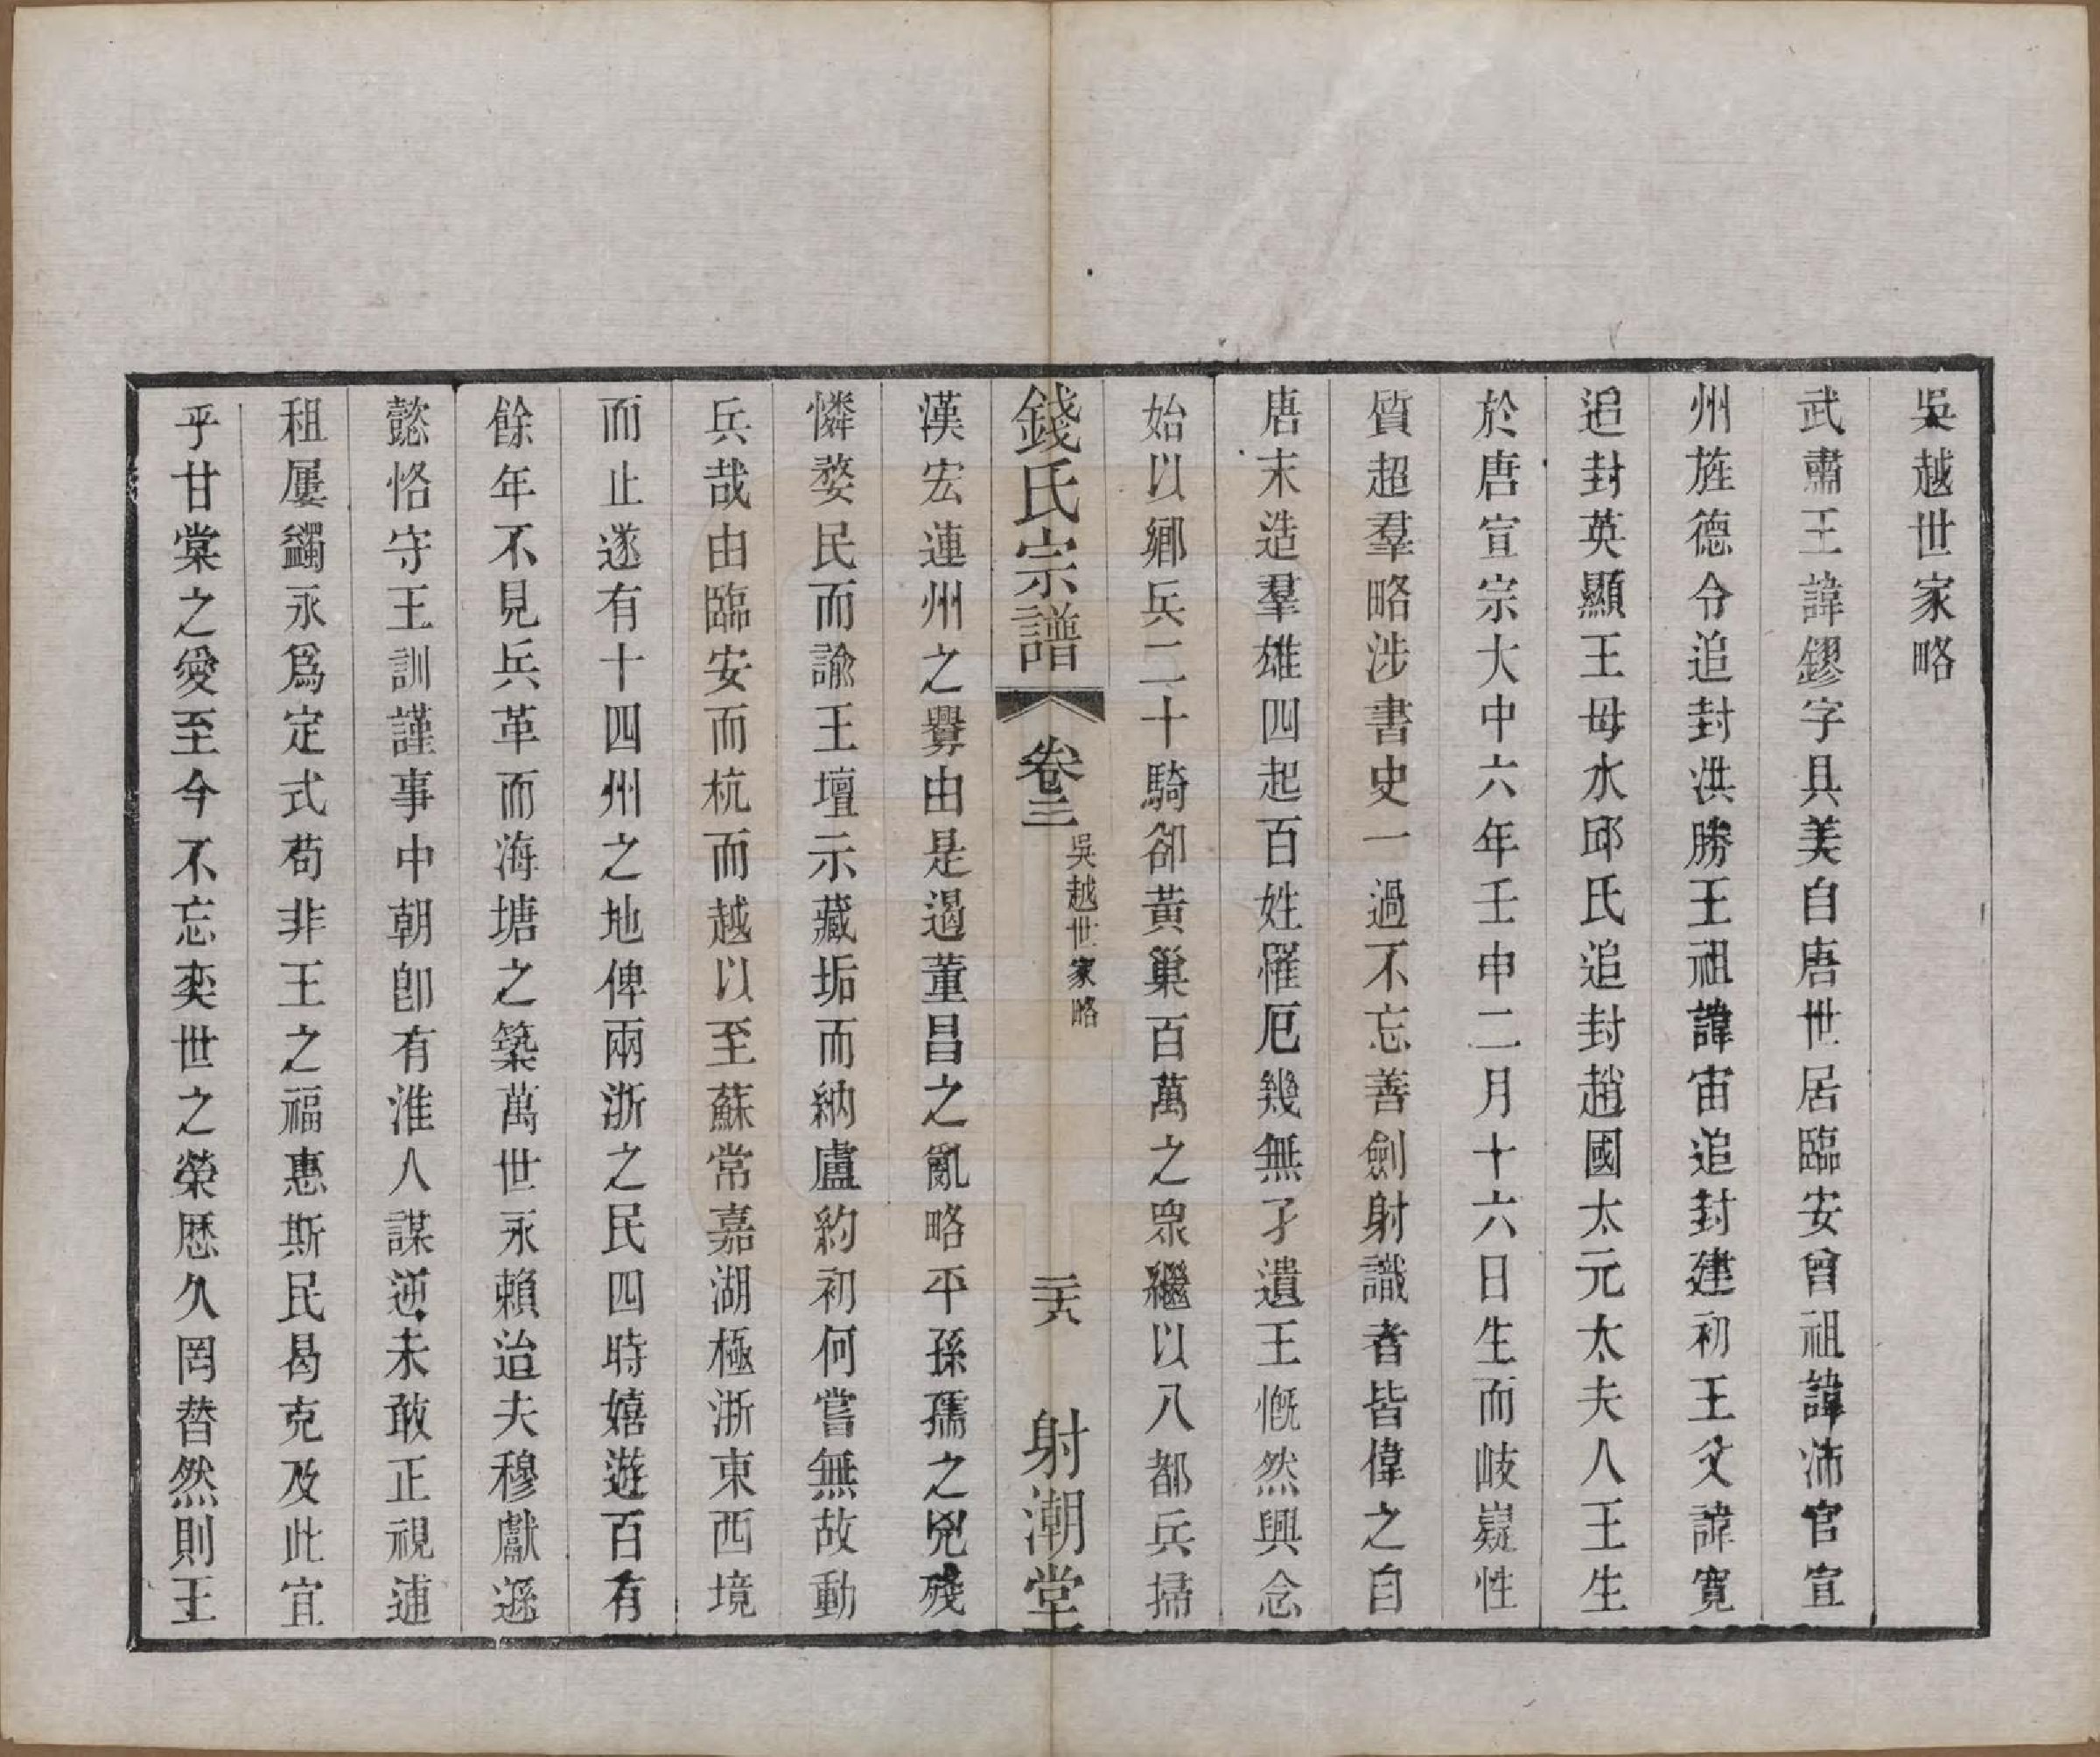 吳越世家略
武肅王諱鏐字具美自唐世居臨安曾祖諱沛官宣
州旌德令追封洪勝王祖諱宙追封建初王父諱寬
追封英顯王母水邱氏追封趙國太元太夫人王生
於唐宣宗大中六年壬申二月十六日生而岐嶷性
質超羣略涉書史一過不忘善劍射識者皆偉之自
唐末造羣雄四起百姓罹厄幾無孑遺王慨然興念
始以鄉兵二十騎卻黃巢百萬之眾繼以八都兵掃
錢氏宗譜 卷三 吳越世家略 二六 射潮堂
漢宏連州之釁由是遏董昌之亂略平孫孺之兇殘
憐婺民而諭王壇示藏垢而納盧約初何嘗無故動
兵哉由臨安而杭而越以至蘇常嘉湖極浙東西境
而止遂有十四州之地俾兩浙之民四時嬉遊百有
餘年不見兵革而海塘之築萬世永賴迨夫穆獻遜
懿恪守王訓謹事中朝卽有淮人謀逆未敢正視逋
租屢蠲永爲定式苟非王之福惠斯民曷克及此宜
乎甘棠之愛至今不忘奕世之榮歷久罔替然則王